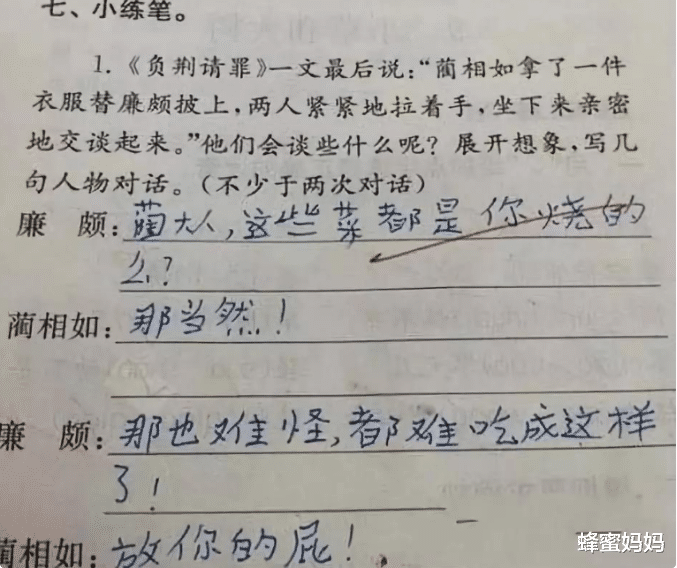 七、小练笔。
1.《负荆请罪》一文最后说:“蔺相如拿了一件
衣服替廉颇披上,两人紧紧地拉着手,坐下来亲密
地交谈起来。”他们会谈些什么呢?展开想象,写几
句人物对话。(不少于两次对话)
廉 颇:蔺大人,这些菜都是你烧的
么?
蔺相如:那当然!
廉 颇:那也难怪,都难吃成这样
了!
蔺相如:放你的屁!
蜂蜜妈妈